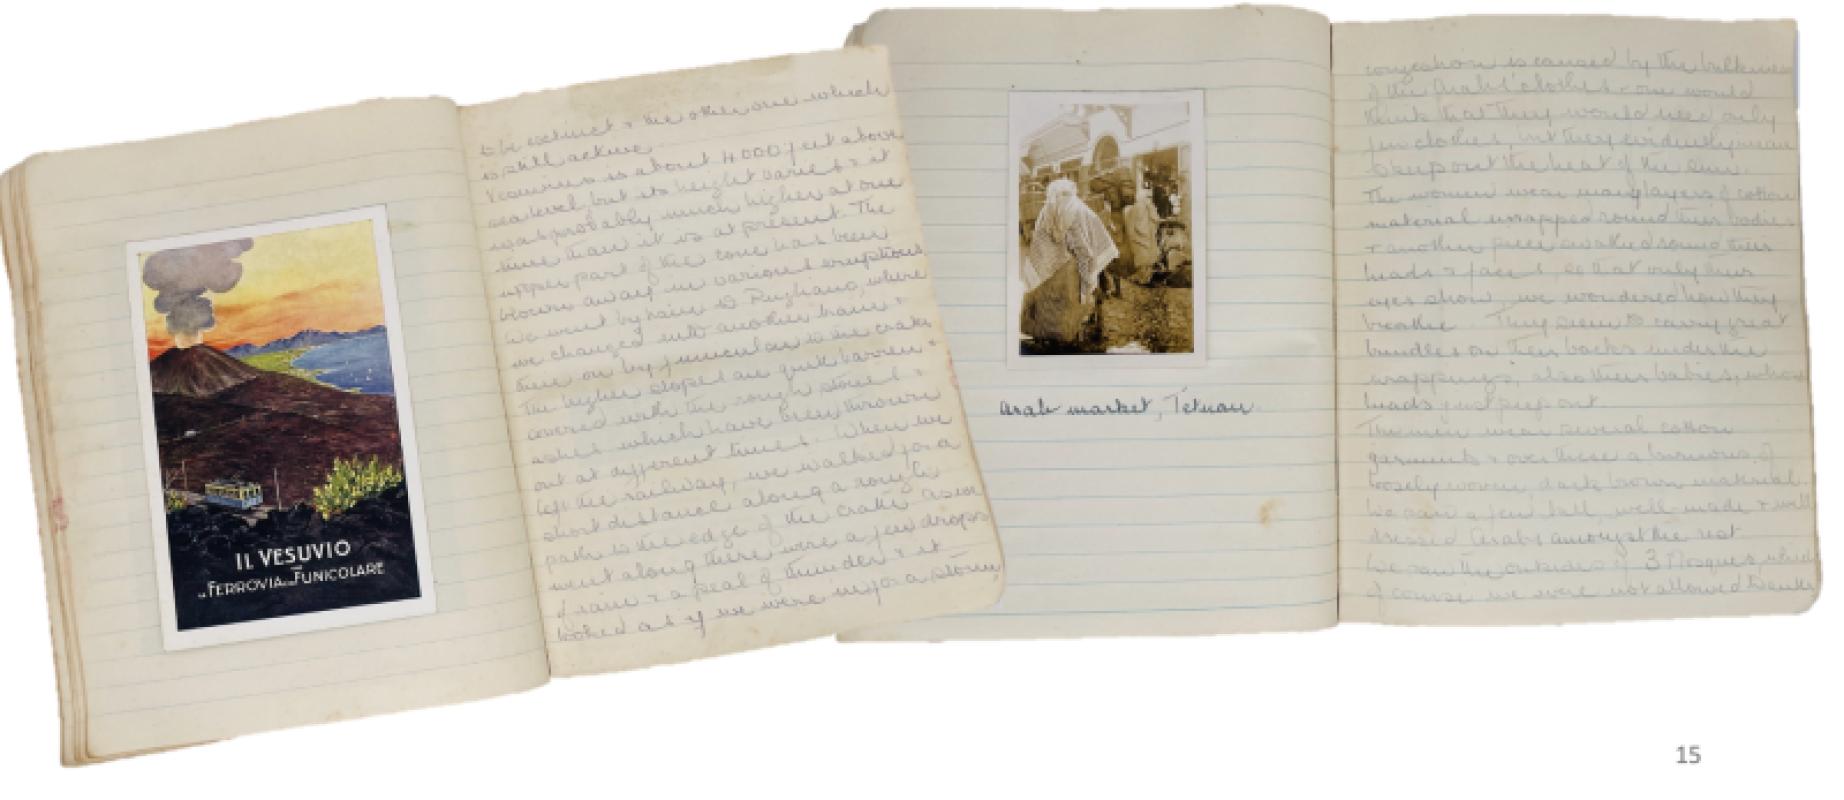 IL VESUVIO
FERROVIA FUNICOLARE
to be extinct & the other one which
is still active.
Vesuvius is about 4000 feet above
sea level, but its height varies & it
was probably much higher at one
time than it is at present. The
upper part of the cone has been
blown away in various eruptions
We went by train to Pugliano, where
we changed into another train &
then on by funicular to the crater
The higher slopes are quite barren &
covered with the rough stones &
ashes which have been thrown
out at different times. When we
left the railway, we walked for a
short distance along a rough
path to the edge of the crater. As we
went along there were a few drops
of rain & a peal of thunder & it
looked as if we were in for a storm,
Arab market, Tetuan.
congestion is caused by the bulkiness
of the Arabs' clothes & one would
think that they would need only
few clothes, but they evidently mean
to keep out the heat of the sun.
The women wear many layers of cotton
material wrapped round their bodies
& another piece swathed round their
heads & faces, so that only their
eyes show, we wondered how they
breathe. They seem to carry great
bundles on their backs under the
wrappings, also their babies, whose
heads just peep out.
The men wear several cotton
garments & over these a burnous of
loosely woven, dark brown material.
We saw a few tall, well-made & well
dressed Arabs amongst the rest.
We saw the outsides of 3 Mosques, which
of course we were not allowed to enter
15